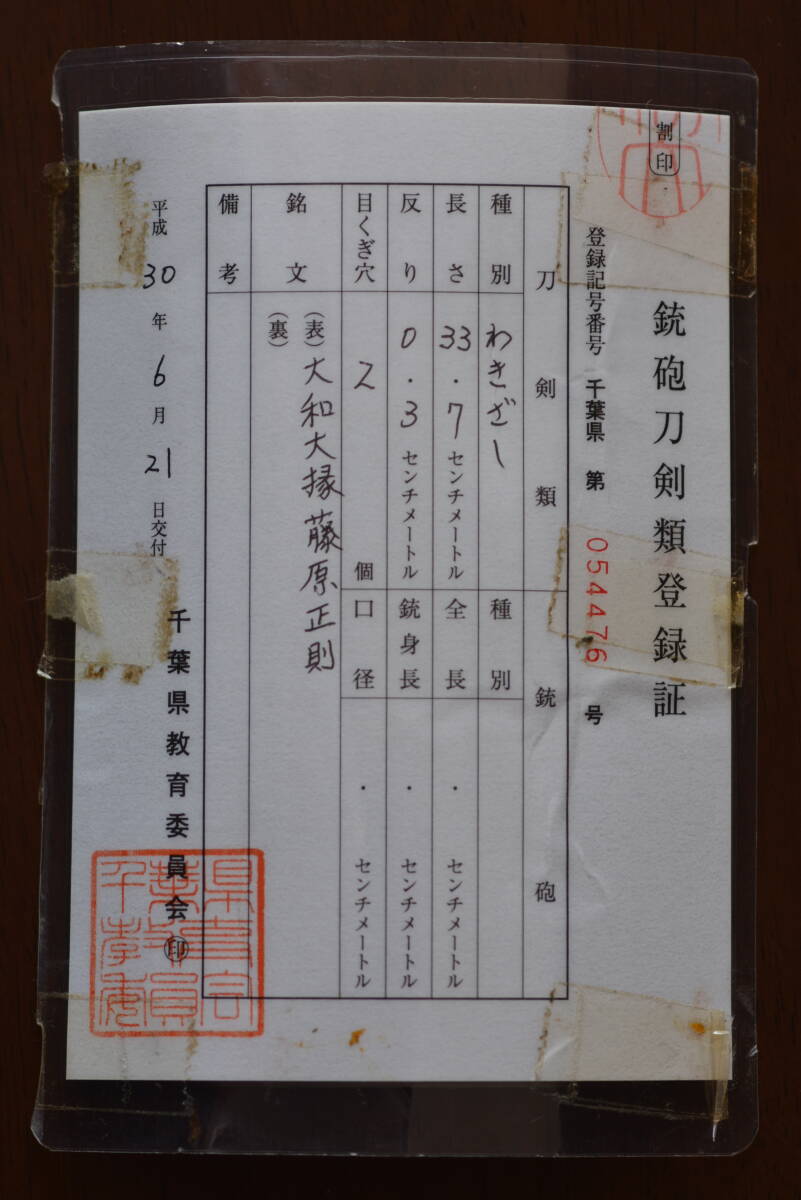 割印
銃砲刀剣類登録証
登録記号番号 千葉県 第 054476 号
刀剣類 銃砲
種別 わきざし 種別
長さ 33.7センチメートル 全長 ・ センチメートル
反り 0.3センチメートル 銃身長 ・ センチメートル
目くぎ穴 2個 口径 ・ センチメートル
銘文 (表)大和大掾藤原正則
(裏)
備考
平成30年6月21日交付
千葉県教育委員会 印
千葉県教育委員会